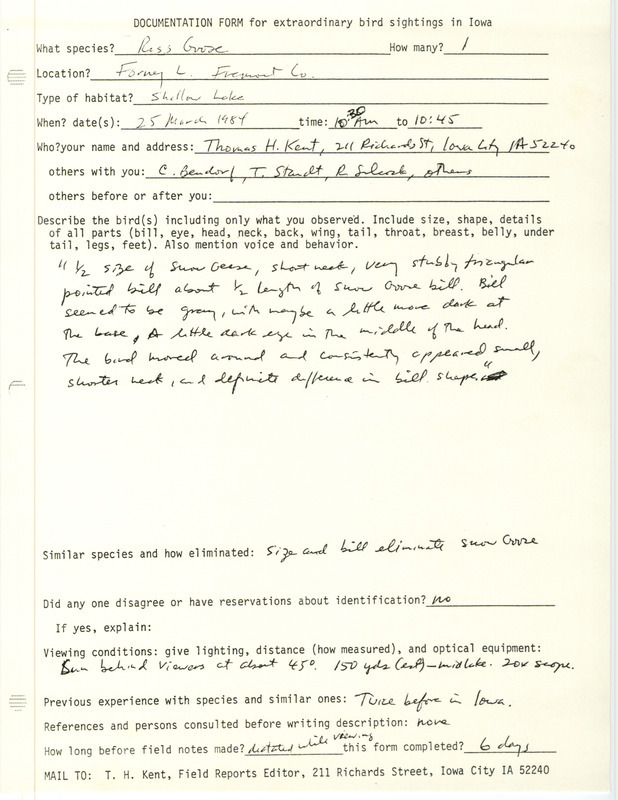 DOCUMENTATION FORM for extraordinary bird sightings in Iowa
What species? Ross Goose How many? 1
Location? Forney L. Fremont Co.
Type of habitat? Shallow Lake
When? date(s): 25 March 1984 time: 10 30 AM to 10:45
Who?your name and address: Thomas H. Kent, 211 Richards St, Iowa City IA 52240
others with you: C. Bendorf, T. Staudt, R Silcock, others
others before or after you:
Describe the bird(s) including only what you observed. Include size, shape, details
of all parts (bill, eye, head, neck, back, wing, tail, throat, breast, belly, under
tail, legs, feet). Also mention voice and behavior.
"1/2 size of Snow Geese, short neck, very stubby triangular
pointed bill about 1/2 length of Snow Goose bill. Bill
seemed to be gray, with maybe a little more dark at
the base, A little dark eye in the middle of the head.
The bird moved around and consistently appeared small,
shorter neck, and definite difference in bill shape."
Similar species and how eliminated: Size and bill eliminate Snow Goose
Did any one disagree or have reservations about identification? no
If yes, explain:
Viewing conditions: give lighting, distance (how measured), and optical equipment:
Sun behind viewers at about 45°. 150 yds (est) – midlake. 20x scope.
Previous experience with species and similar ones: Twice before in Iowa.
References and persons consulted before writing description: none
How long before field notes made? dictated while viewing this form completed? 6 days
MAIL TO: T. H. Kent, Field Reports Editor, 211 Richards Street, Iowa City IA 52240